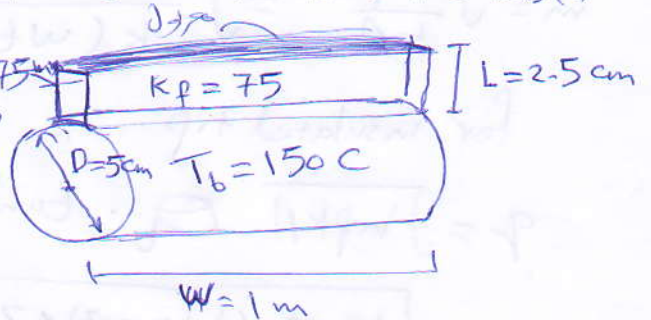 75 mm
K_f = 75
L = 2.5 cm
D=5cm T_b = 150 C
W = 1 m